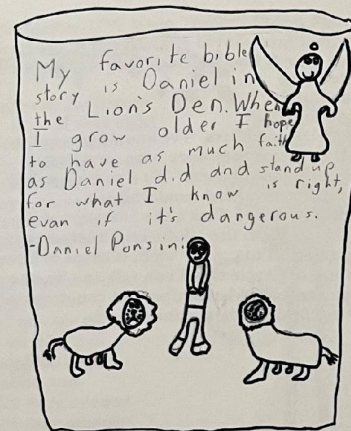 My favorite bible
story is Daniel in
the Lion's Den. When
I grow older I hope
to have as much faith
as Daniel did and stand up
for what I know is right,
evan if it's dangerous.
-Daniel Ponsini